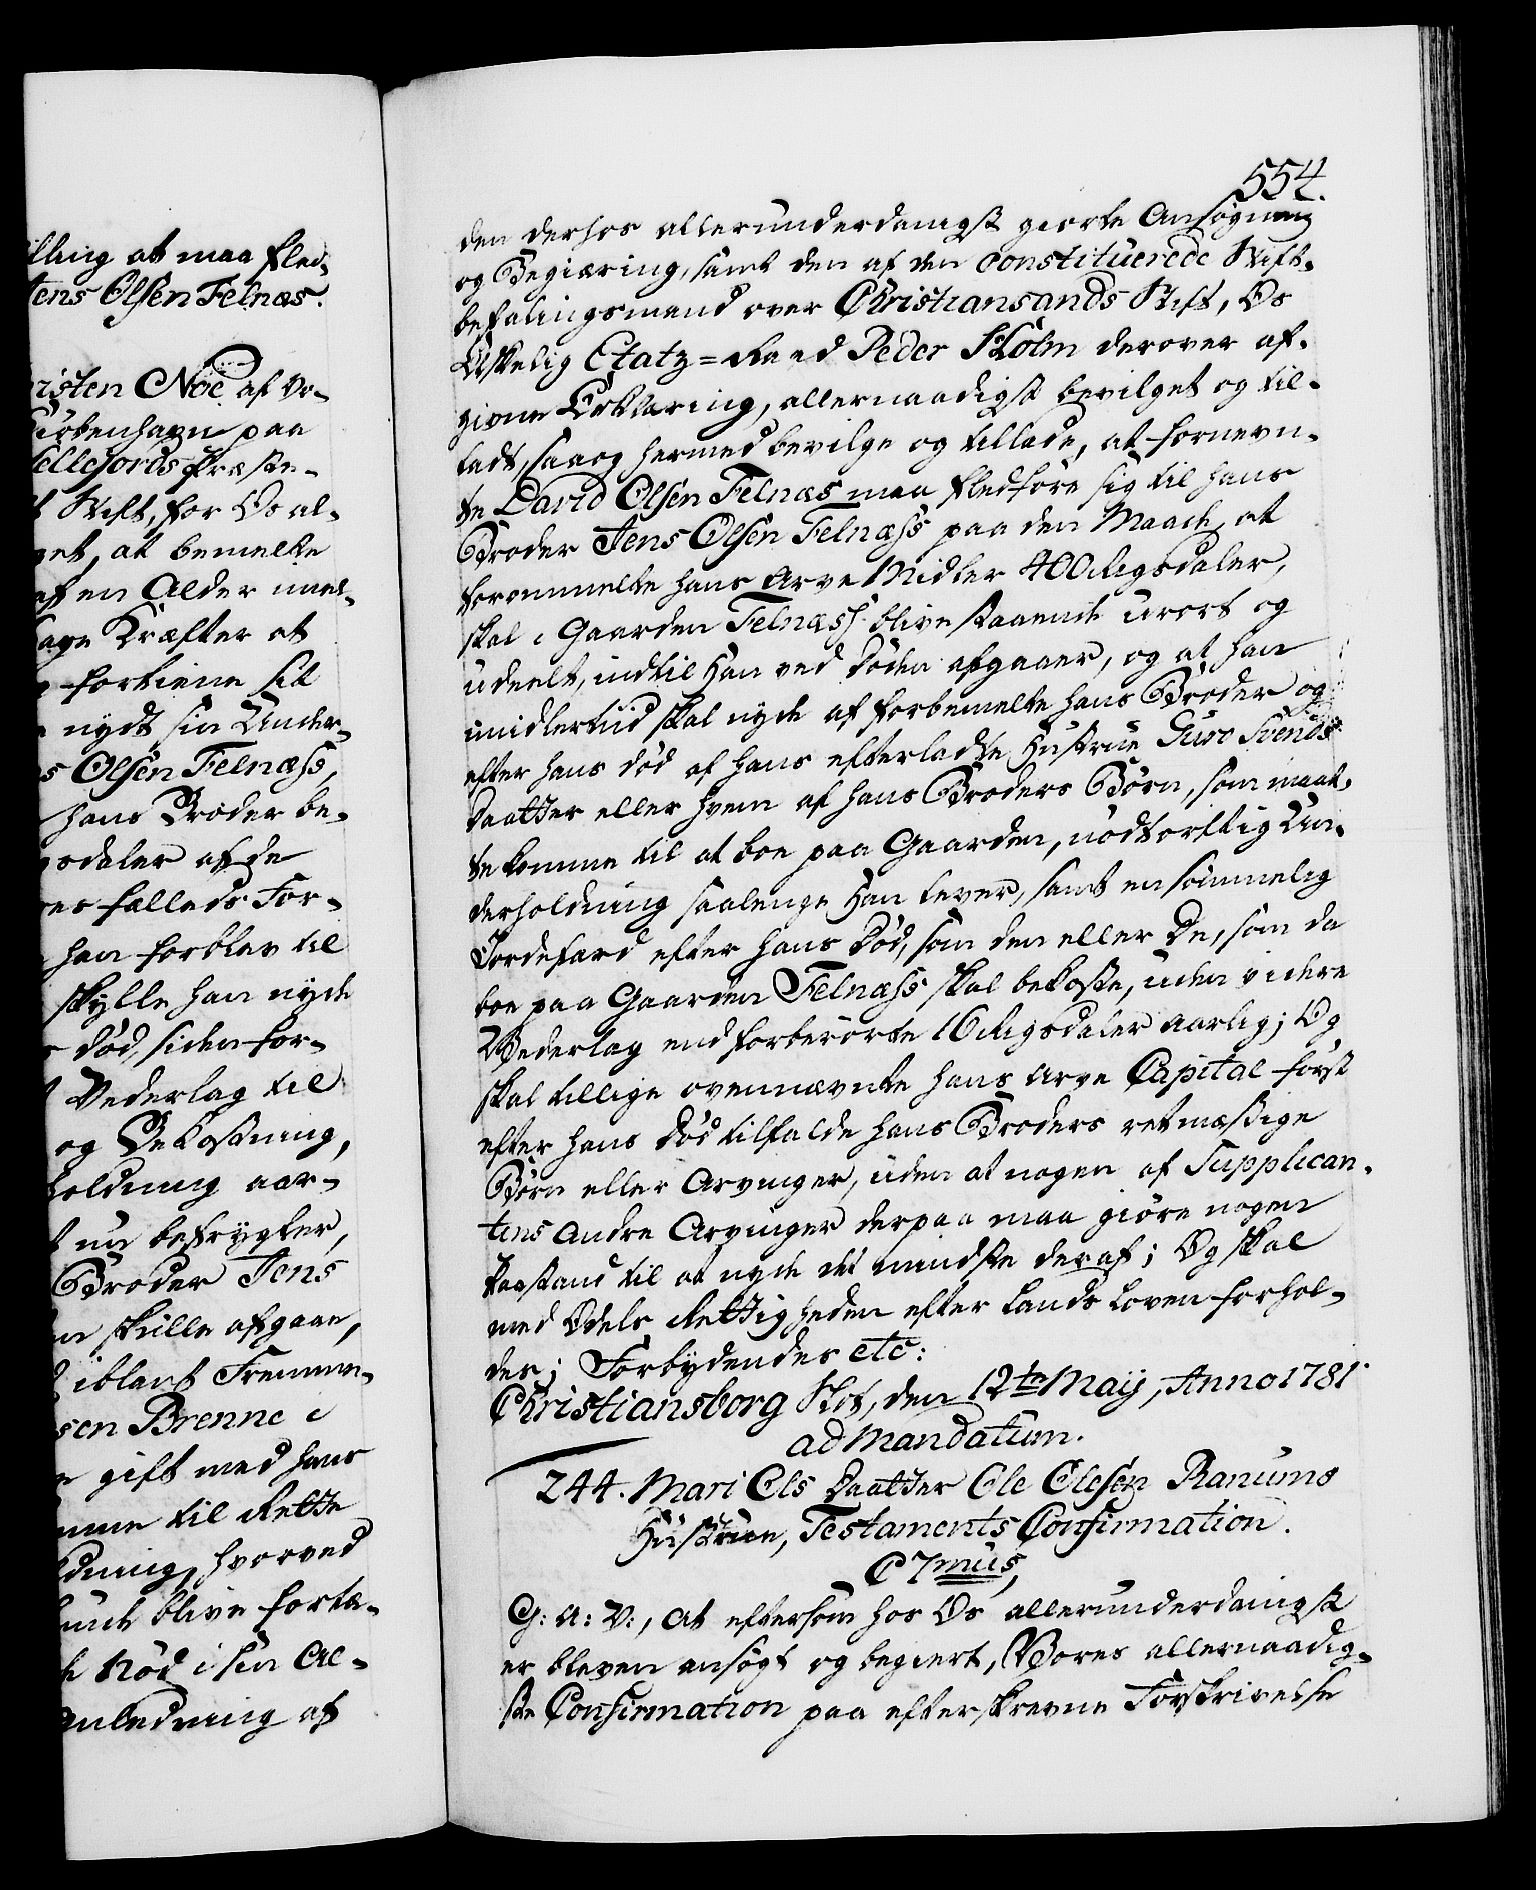 illing at maa fled-
Jens Olsen Felnæs.
risten Nöe af Vo-
Kiöbenhavn paa
Hellejords Præste-
Stift, for Os al-
get, at bemelte
af en Alder imel-
Kræfter at
fortiene sit
nydt sin Under-
Olsen Felnæss,
hans Broder be-
gsdaler af de
res fælleds For-
han forblev til
skulle han nyde
Död, siden for-
Vederlag til
og Bekostning,
holdning aar-
nu befrygter,
Broder Jens
skulle afgaae,
iblant Fremme-
sen Brenne i
gift med hans
komme til Rette
dning, hvorved
blive forla-
Nöd i sin Al-
Anledning af
554.
den derhos allerunderdanigst giorte Ansøgning
og Begiæring, samt den af den Constituerede Stift-
befalingsmand over Christiansands Stift, Os
Elskelig Etatz=Raad Peder Holm derover af-
givne Erklæring, allernaadigst bevilget og til-
ladt, saaog hermed bevilge og tillade, at fornevn-
te David Olsen Felnæs maa fledföre sig til hans
Broder Jens Olsen Felnæss paa den Maade, at
forommelte hans Arve Midler 400 Rigsdaler,
skal i Gaarden Felnæss blive staaende urort og
udeelt, indtil Han ved Döden afgaaer, og at han
imidlertiid skal nyde af forbemelte hans Broder og
efter hans död af hans efterladte Hustrue Guro Svends
Daatter eller hvem af hans Broders Börn, som maat-
te komme til at boe paa Gaarden, nödtorftig Un-
derholdning saalenge Han lever, samt en sömmelig
Jordefærd efter hans Död, som den eller De, som da
boe paa Gaarden Felnæss skal bekoste, uden videre
Vederlag end forberörte 16 Rigsdaler aarlig; Og
skal tillige ovennævnte hans Arve Capital först
efter hans Död tilfalde hans Broders retmæssige
Börn eller Arvinger, uden at nogen af Supplican-
tens Andre Arvinger derpaa maa giöre nogen
Paastand til at nyde det mindste deraf; Og skal
med Odels Rettigheden efter Lands Loven forhol-
des; Forbydendes etc:
Christiansborg Slot, den 12te May, Anno 1781.
ad Mandatum.
244. Mari Ols Daatter Ole Olesen Ranums
Hustrue, Testaments Confirmation.
C 7mus,
G: A: V:, at eftersom hos Os allerunderdanigst
er bleven ansögt og begiert, Vores allernaadig-
ste Confirmation paa efterskrevne Forskrivelse